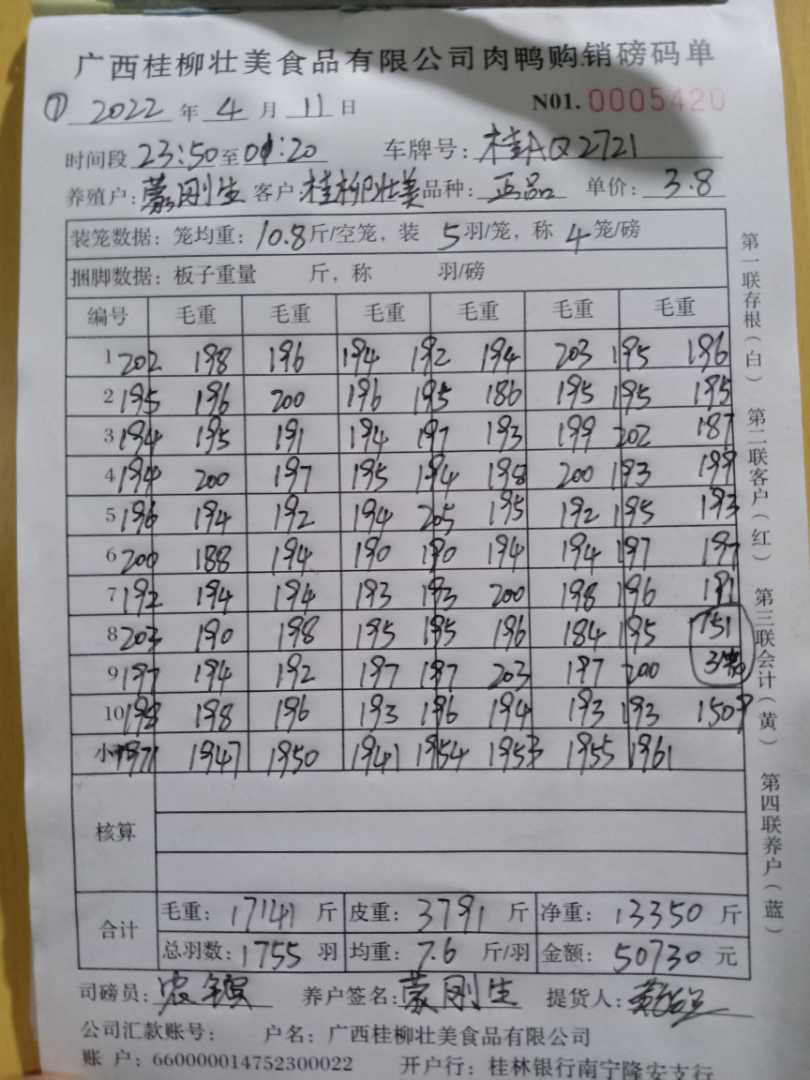 广西桂柳壮美食品有限公司肉鸭购销磅码单
① 2022 年 4 月 11 日 N01. 0005420
时间段 23:50 至 01:20 车牌号: 桂AQ2721
养殖户: 蒙刚生 客户: 桂柳壮美 品种: 正品 单价: 3.8
装笼数据: 笼均重: 10.8 斤/空笼, 装 5 羽/笼, 称 4 笼/磅
捆脚数据: 板子重量 斤, 称 羽/磅
编号 毛重 毛重 毛重 毛重 毛重 毛重
1 202 198 196 194 192 194 203 195 196
2 195 196 200 196 195 186 195 195 195
3 194 195 191 194 197 193 199 202 187
4 194 200 197 195 194 198 200 193 199
5 196 194 192 194 205 195 192 195 193
6 200 188 194 190 190 194 194 197 197
7 192 194 194 193 193 200 198 196 191
8 203 190 198 195 195 196 184 195 151
9 197 194 192 197 197 203 197 200 3笼
10 198 198 196 193 196 194 193 193 1509
小 1971 1947 1950 1941 1954 1953 1955 1961
核算
合计 毛重: 17141 斤 皮重: 3791 斤 净重: 13350 斤
总羽数: 1755 羽 均重: 7.6 斤/羽 金额: 50730 元
司磅员: 养户签名: 蒙刚生 提货人:
公司汇款账号: 户名: 广西桂柳壮美食品有限公司
账 户: 660000014752300022 开户行: 桂林银行南宁隆安支行
第一联存根(白) 第二联客户(红) 第三联会计(黄) 第四联养户(蓝)